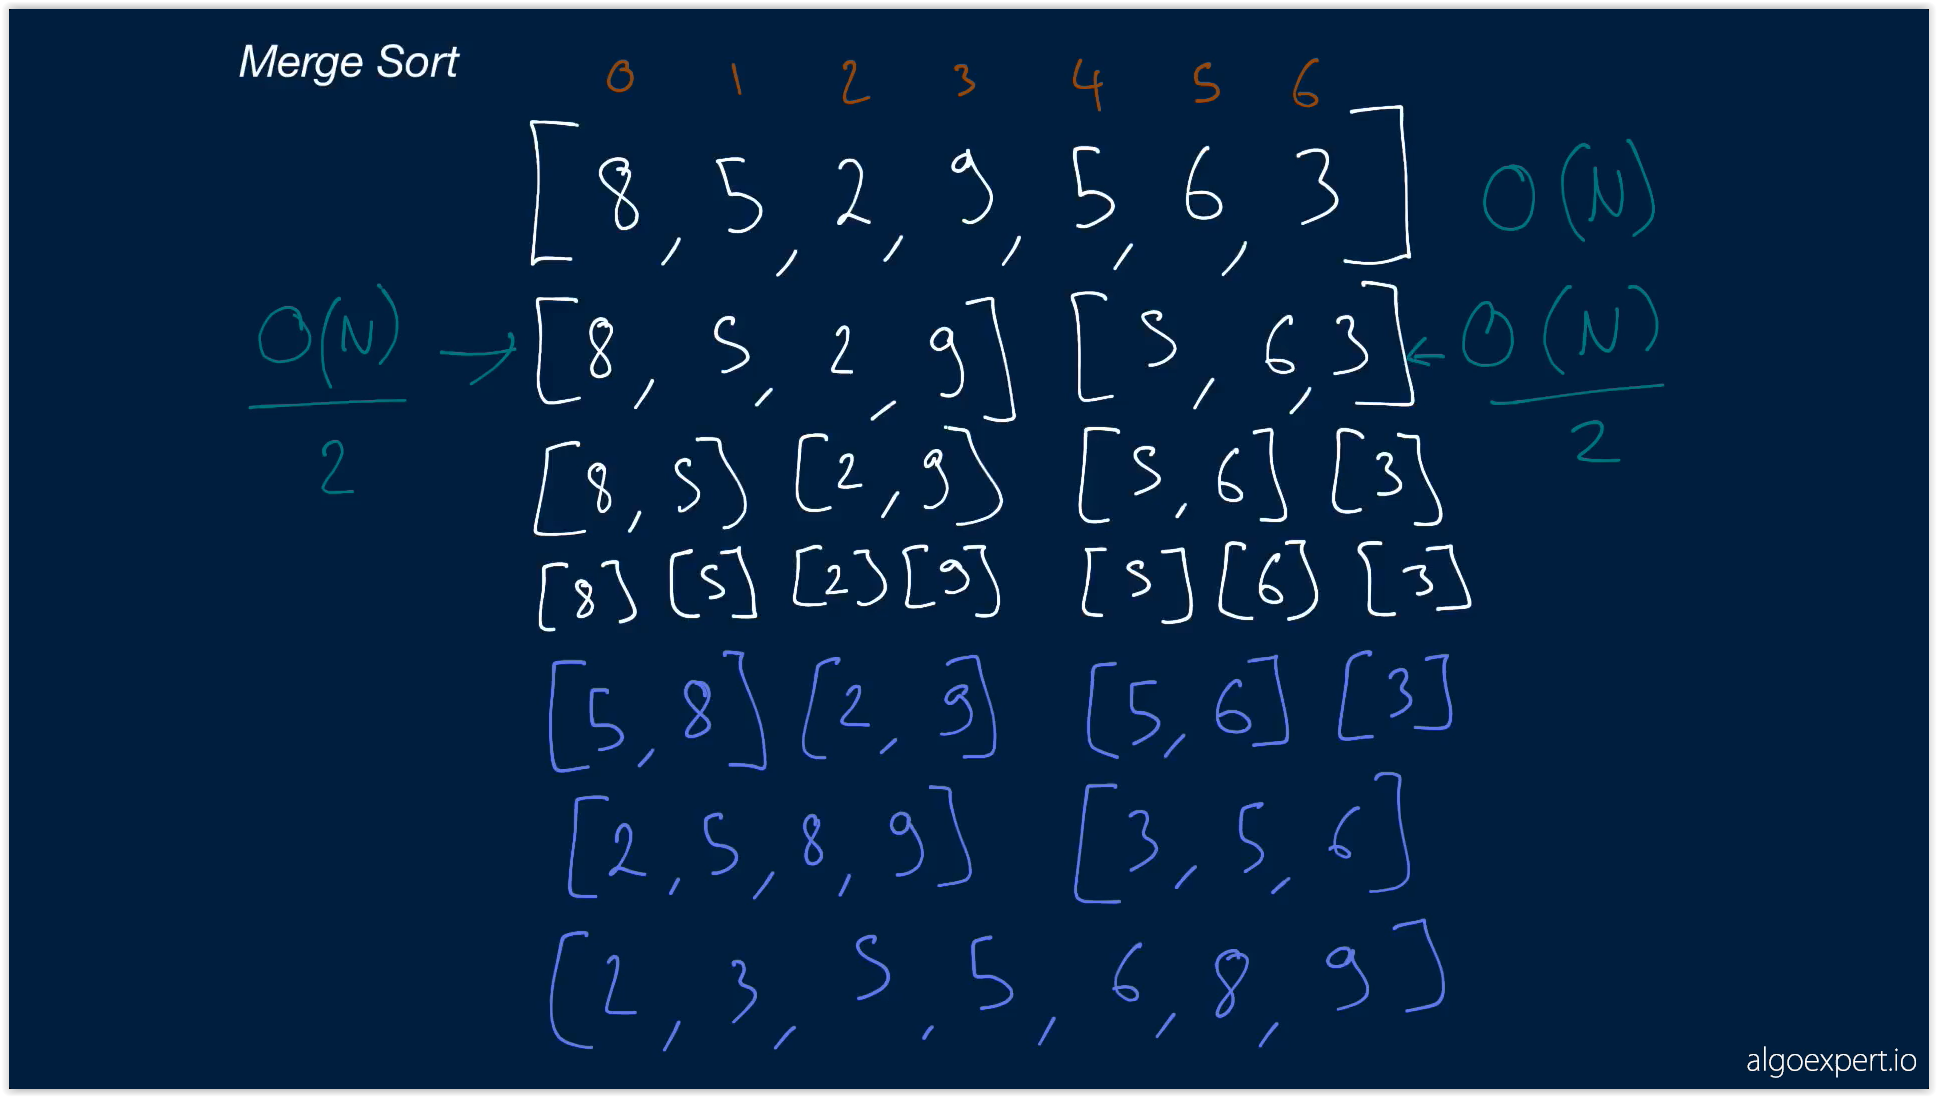 Merge Sort
0 1 2 3 4 5 6
[8, 5, 2, 9, 5, 6, 3] O(N)
O(N)/2 → [8, 5, 2, 9] [5, 6, 3] ← O(N)/2
[8, 5] [2, 9] [5, 6] [3]
[8] [5] [2] [9] [5] [6] [3]
[5, 8] [2, 9] [5, 6] [3]
[2, 5, 8, 9] [3, 5, 6]
[2, 3, 5, 5, 6, 8, 9]
algoexpert.io